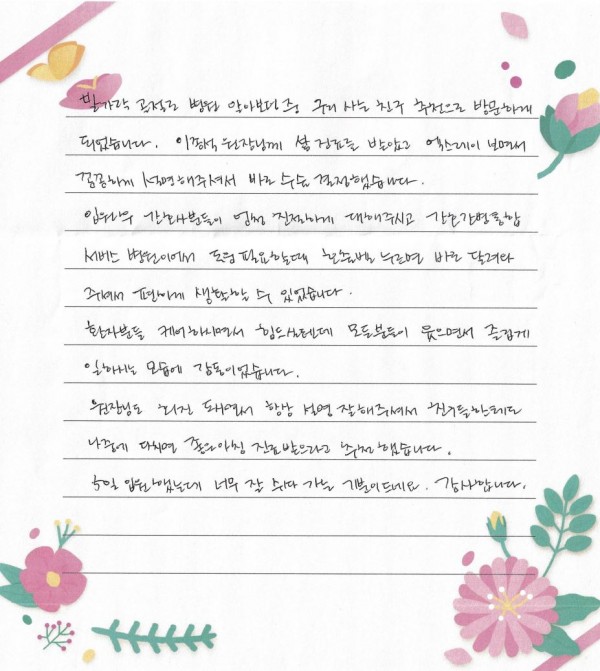 발가락 골절로 병원 알아보던 중 구미 사는 친구 추천으로 방문하게
되었습니다. 이정석 원장님께 첫 진료를 받았고 엑스레이 보면서
꼼꼼하게 설명해주셔서 바로 수술 결정했습니다.
입원후 간호사분들이 엄청 친절하게 대해주시고 간호간병통합
서비스 병원이여서 도움 필요할때 호출벨 누르면 바로 달려와
주셔서 편하게 생활할 수 있었습니다.
환자분들 케어하시면서 힘드실텐데 모든분들이 웃으면서 즐겁게
일하시는 모습에 감동이었습니다.
원장님도 회진 도셔면서 항상 설명 잘해주셔서 친구들한테도
나중에 다치면 좋은아침 진료받으라고 추천했습니다.
일 입원했는데 너무 잘 쉬다 가는 기분이드네요. 감사합니다.